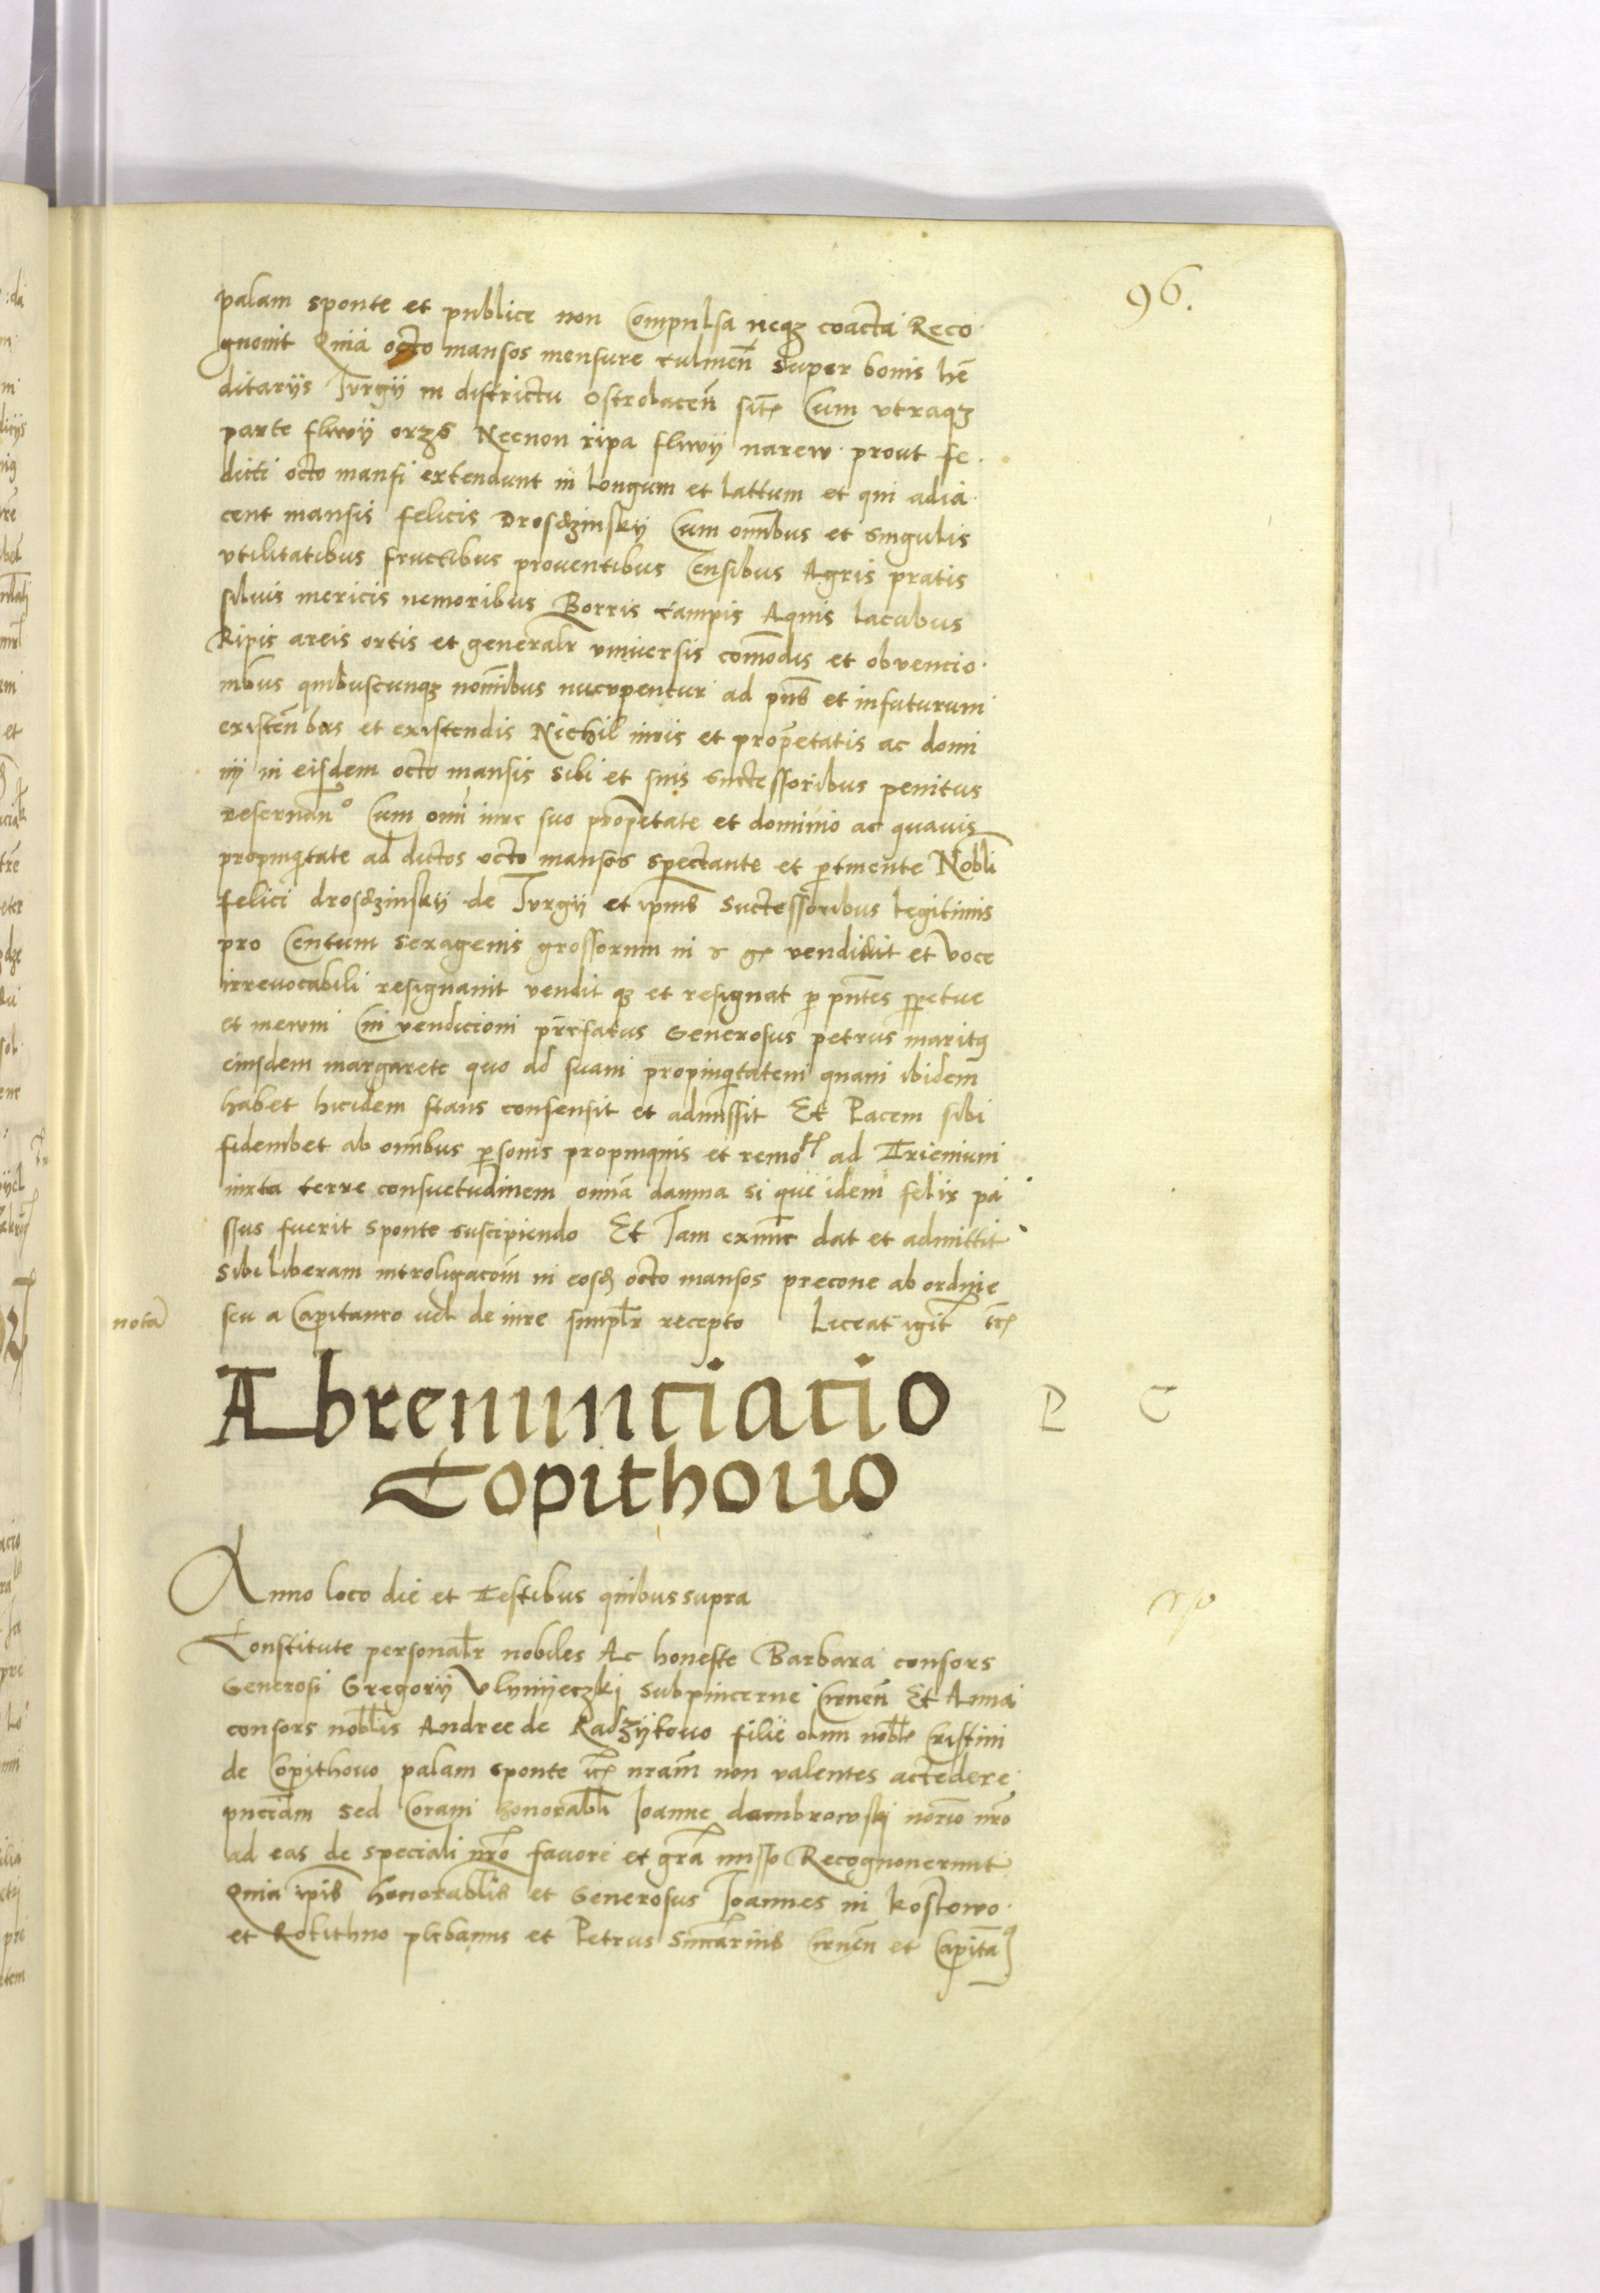 96.
palam sponte et publice non Compulsa neqz coacta Reco
gnouit Quia octo mansos mensure culmen̄ super bonis he͞
ditarijs Turgij in districtu Ostrolacen̄ sit͞ Cum vtraqz
parte fluvij orzs Necnon ripa fluvij narew prout se
dicti octo mansi extendunt in longum et lattum et qui adia
cent mansis felicis Drosdzinskij Cum omībus et singulis
vtilitatibus fructibus prouentibus Censibus Agris pratis
siluis mericis nemoribus Borris campis Aquis lacubus
Ripis areis ortis et generalr̄ vniuersis com̄odis et obvencio
nibus quibuscunqz nomībus nucupentur ad pn̄s et infuturum
existen̄bus et existendis Nichil iuris et prop͞etatis ac domi
nij in eisdem octo mansis sibi et suis successoribus penitus
reseruan͞do Cum om̄i iure suo prop͞etate et dominio ac quauis
propinqitate ad dictos octo mansos spectante et ptinente Nobli
felici drosdzinskij de Turgij et ipius Successoribus legitimis
pro Centum sexagenis grossorum in vendidit et voce
irreuocabili resignauit vendit qz et resignat p pn̄tes ppetue
et in ewm Cui vendicioni pr̄efatus Generosus petrus maritus
eiusdem margarete quo ad suam propinqitatem quam ibidem
habet hicidem stans consensit et admissit Et Pacem sibi
fidembet ab omībus psonis propinquis et remo ad Trienium
iuxta terre consuetudinem omīa damna si que idem felix pa
ssus fuerit sponte suscipiendo Et Iam exnunc dat et admittit
sibi liberam introligacōm in eosd octo mansos precone ab ordine
nota seu a Capitaneo uel de iure simplr̄ recepto Liceat igit͞ etc͞
Abrenunciacio P C
Copithouo
Anno loco die et Testibus quibus supra
Constitute personalr̄ nobiles Ac honeste Barbara consors
Generosi Gregorij Vlynijeczkj Subpincerne Cirnen̄ Et Anna
consors nobl̄is Andree de Radzijkouo filie olim nobl̄ Cristini
de Copithouo palam sponte etc͞ nr̄am non valentes accedere
pn̄ciam sed Coram honorabli Ioanne dambrowskj notr̄io nr̄o
ad eas de speciali nr̄o fauore et gr̄a misso Recognouerunt
Quia ipis honorabl̄is et Generosus Ioannes in kostowo
et Rokithno plebanus et Petrus Cirnen̄ et Capita͞